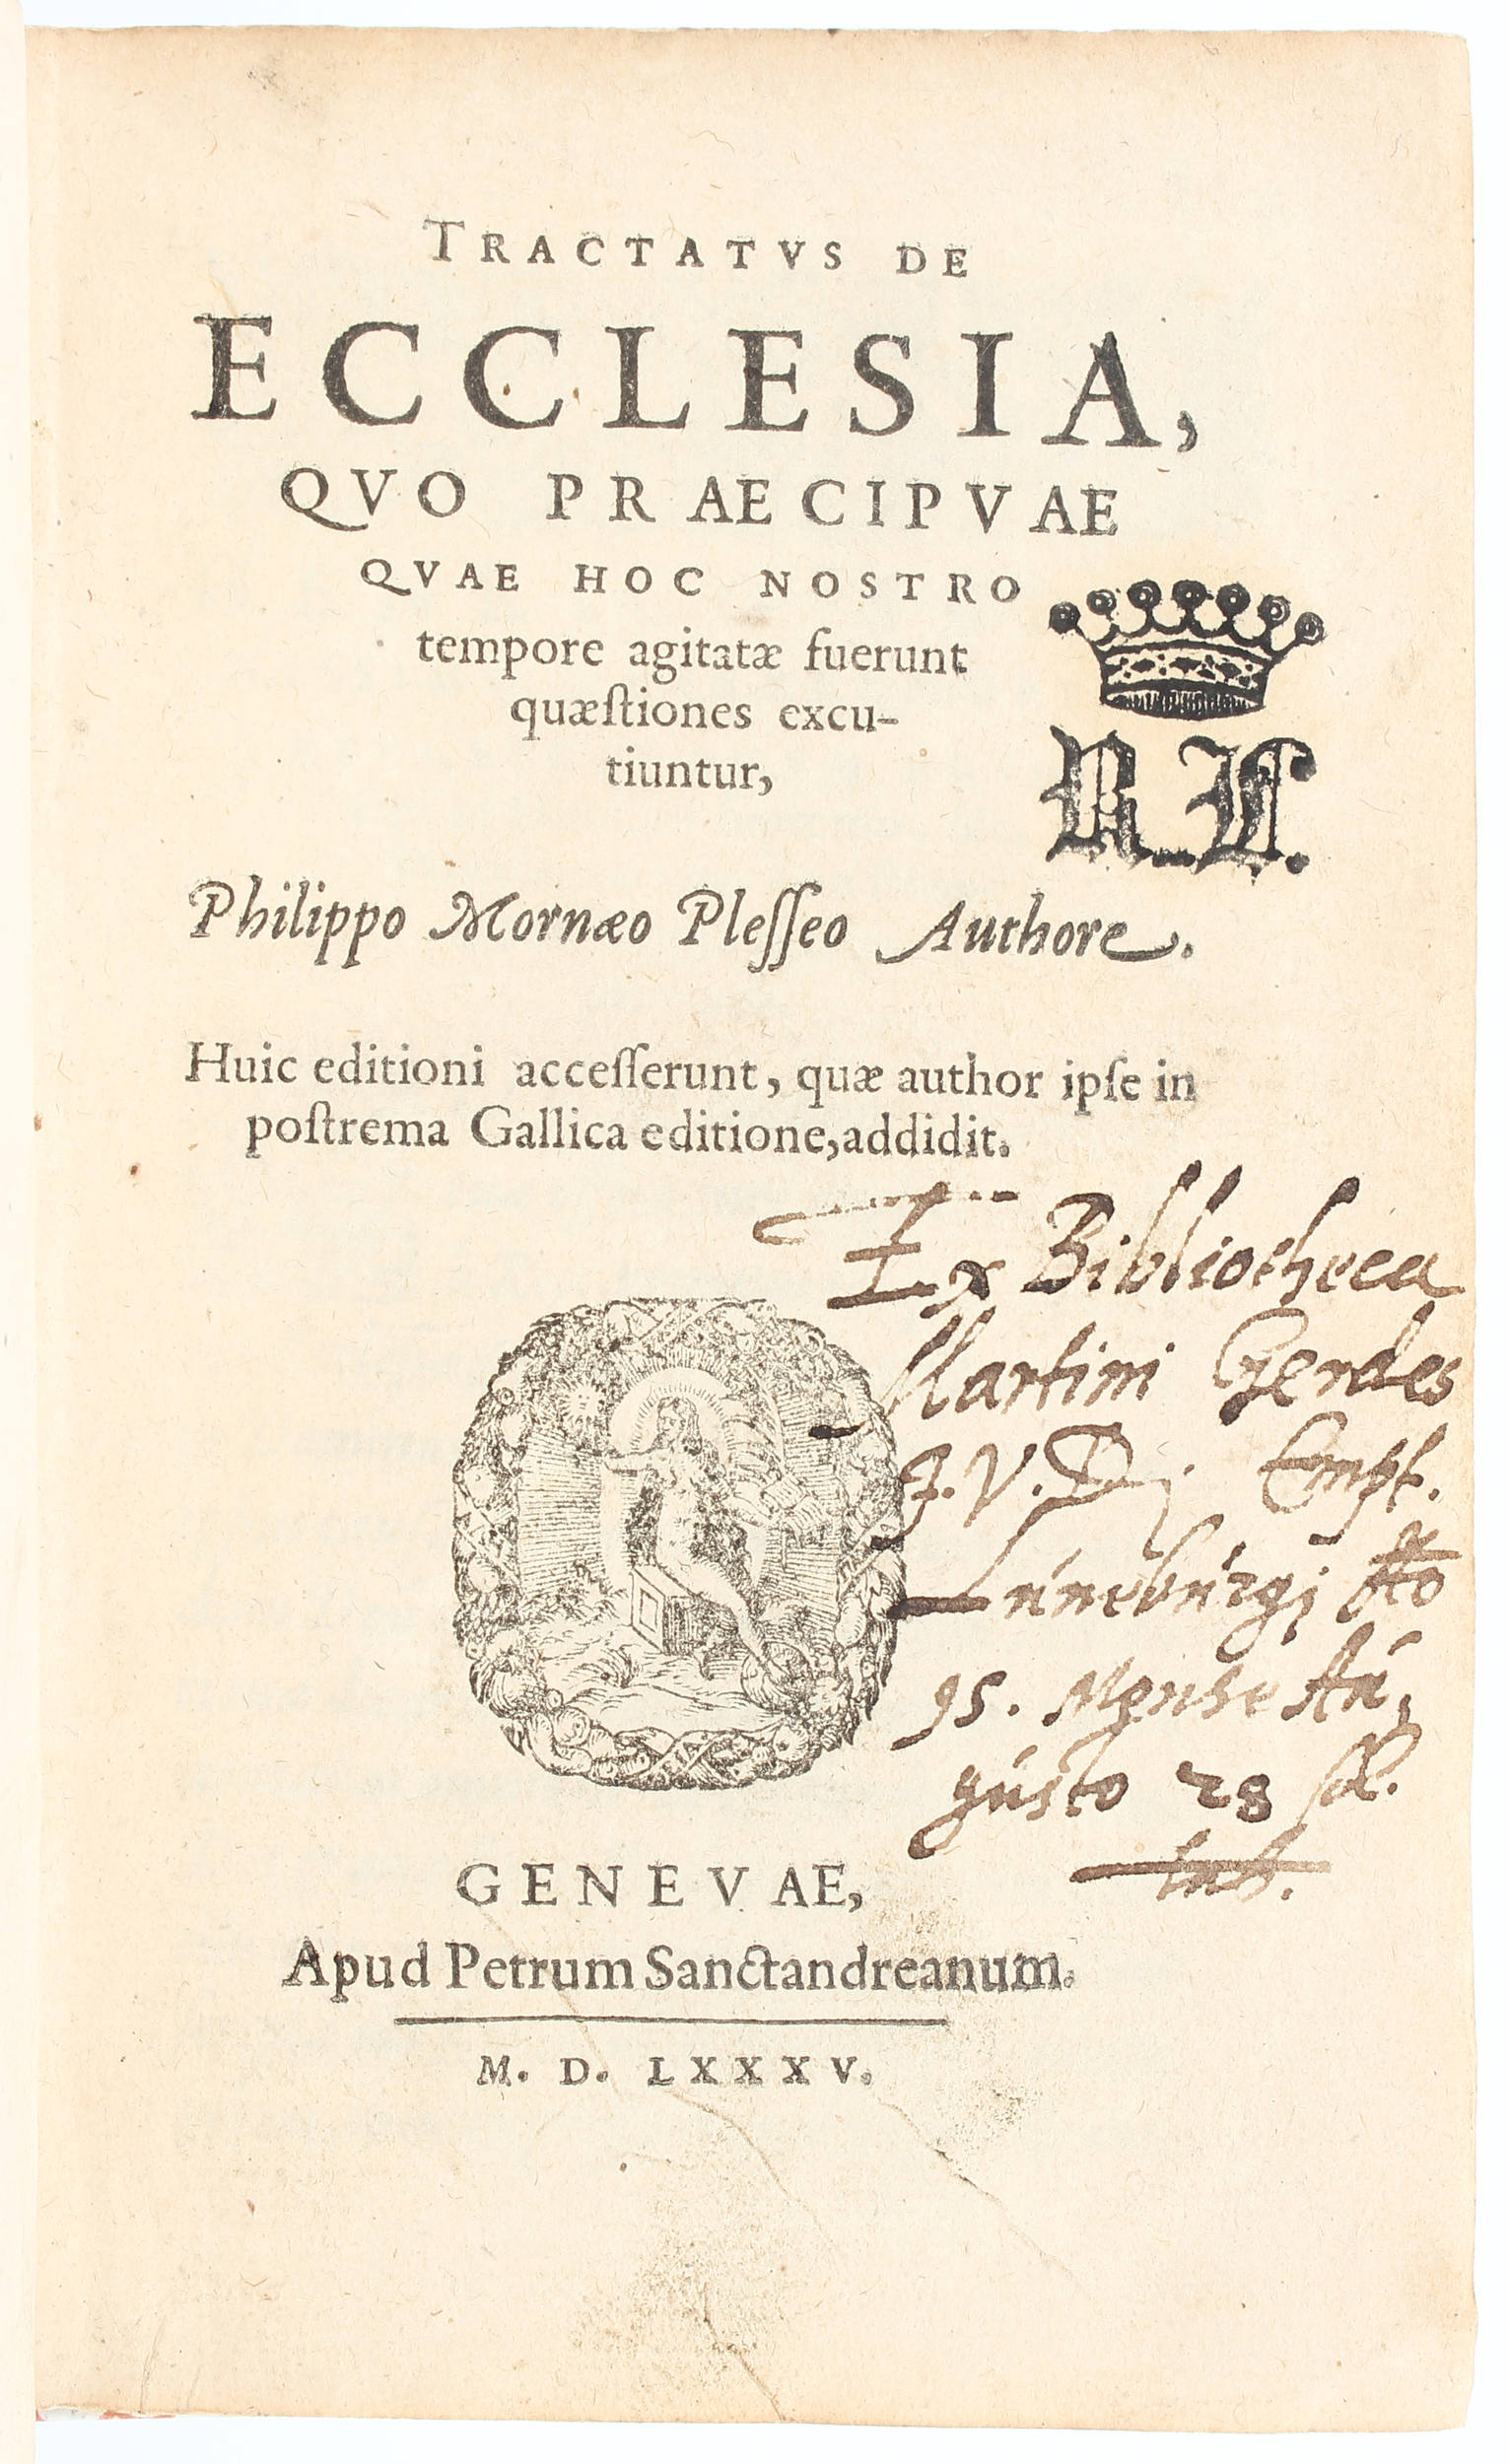 TRACTATVS DE
ECCLESIA,
QVO PRAECIPVAE
QVAE HOC NOSTRO
tempore agitatæ fuerunt
quæſtiones excu-
tiuntur,
Philippo Mornæo Pleſſeo Authore.
Huic editioni acceſſerunt, quæ author ipſe in
poſtrema Gallica editione, addidit.
Ex Bibliotheca
Martini Gerdes
J.V.D. Empt.
Lúnebúrgi Aõ
95. Mense Aú,
gústo 28
GENEVAE,
Apud Petrum Sanctandreanum.
M. D. LXXXV.